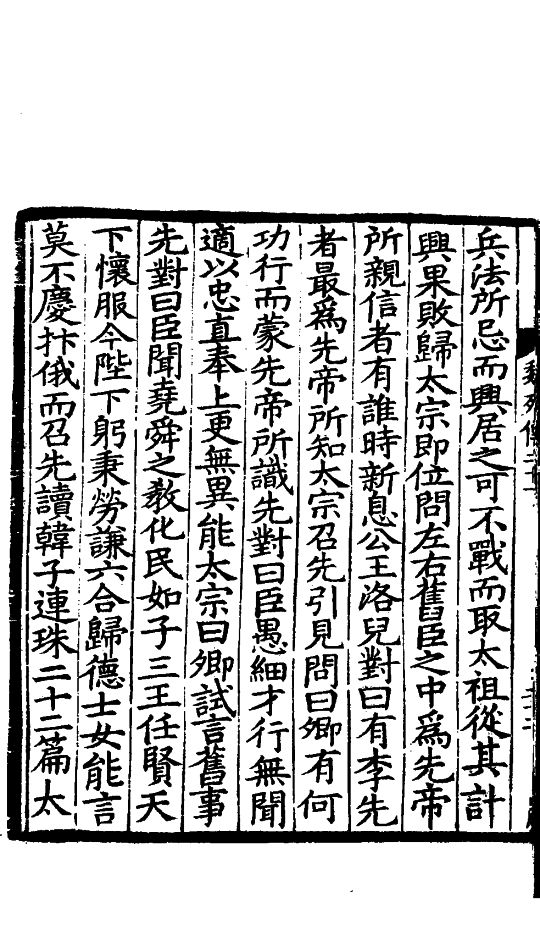 兵法所忌而興居之可不戰而取太祖從其計
興果敗歸太宗即位問左右舊臣之中爲先帝
所親信者有誰時新息公王洛兒對曰有李先
者最爲先帝所知太宗召先引見問曰卿有何
功行而蒙先帝所識先對曰臣愚細才行無聞
適以忠直奉上更無異能太宗曰卿試言舊事
先對曰臣聞堯舜之敎化民如子三王任賢天
下懷服今陛下躬秉勞謙六合歸德士女能言
莫不慶抃俄而召先讀韓子連珠二十二篇太